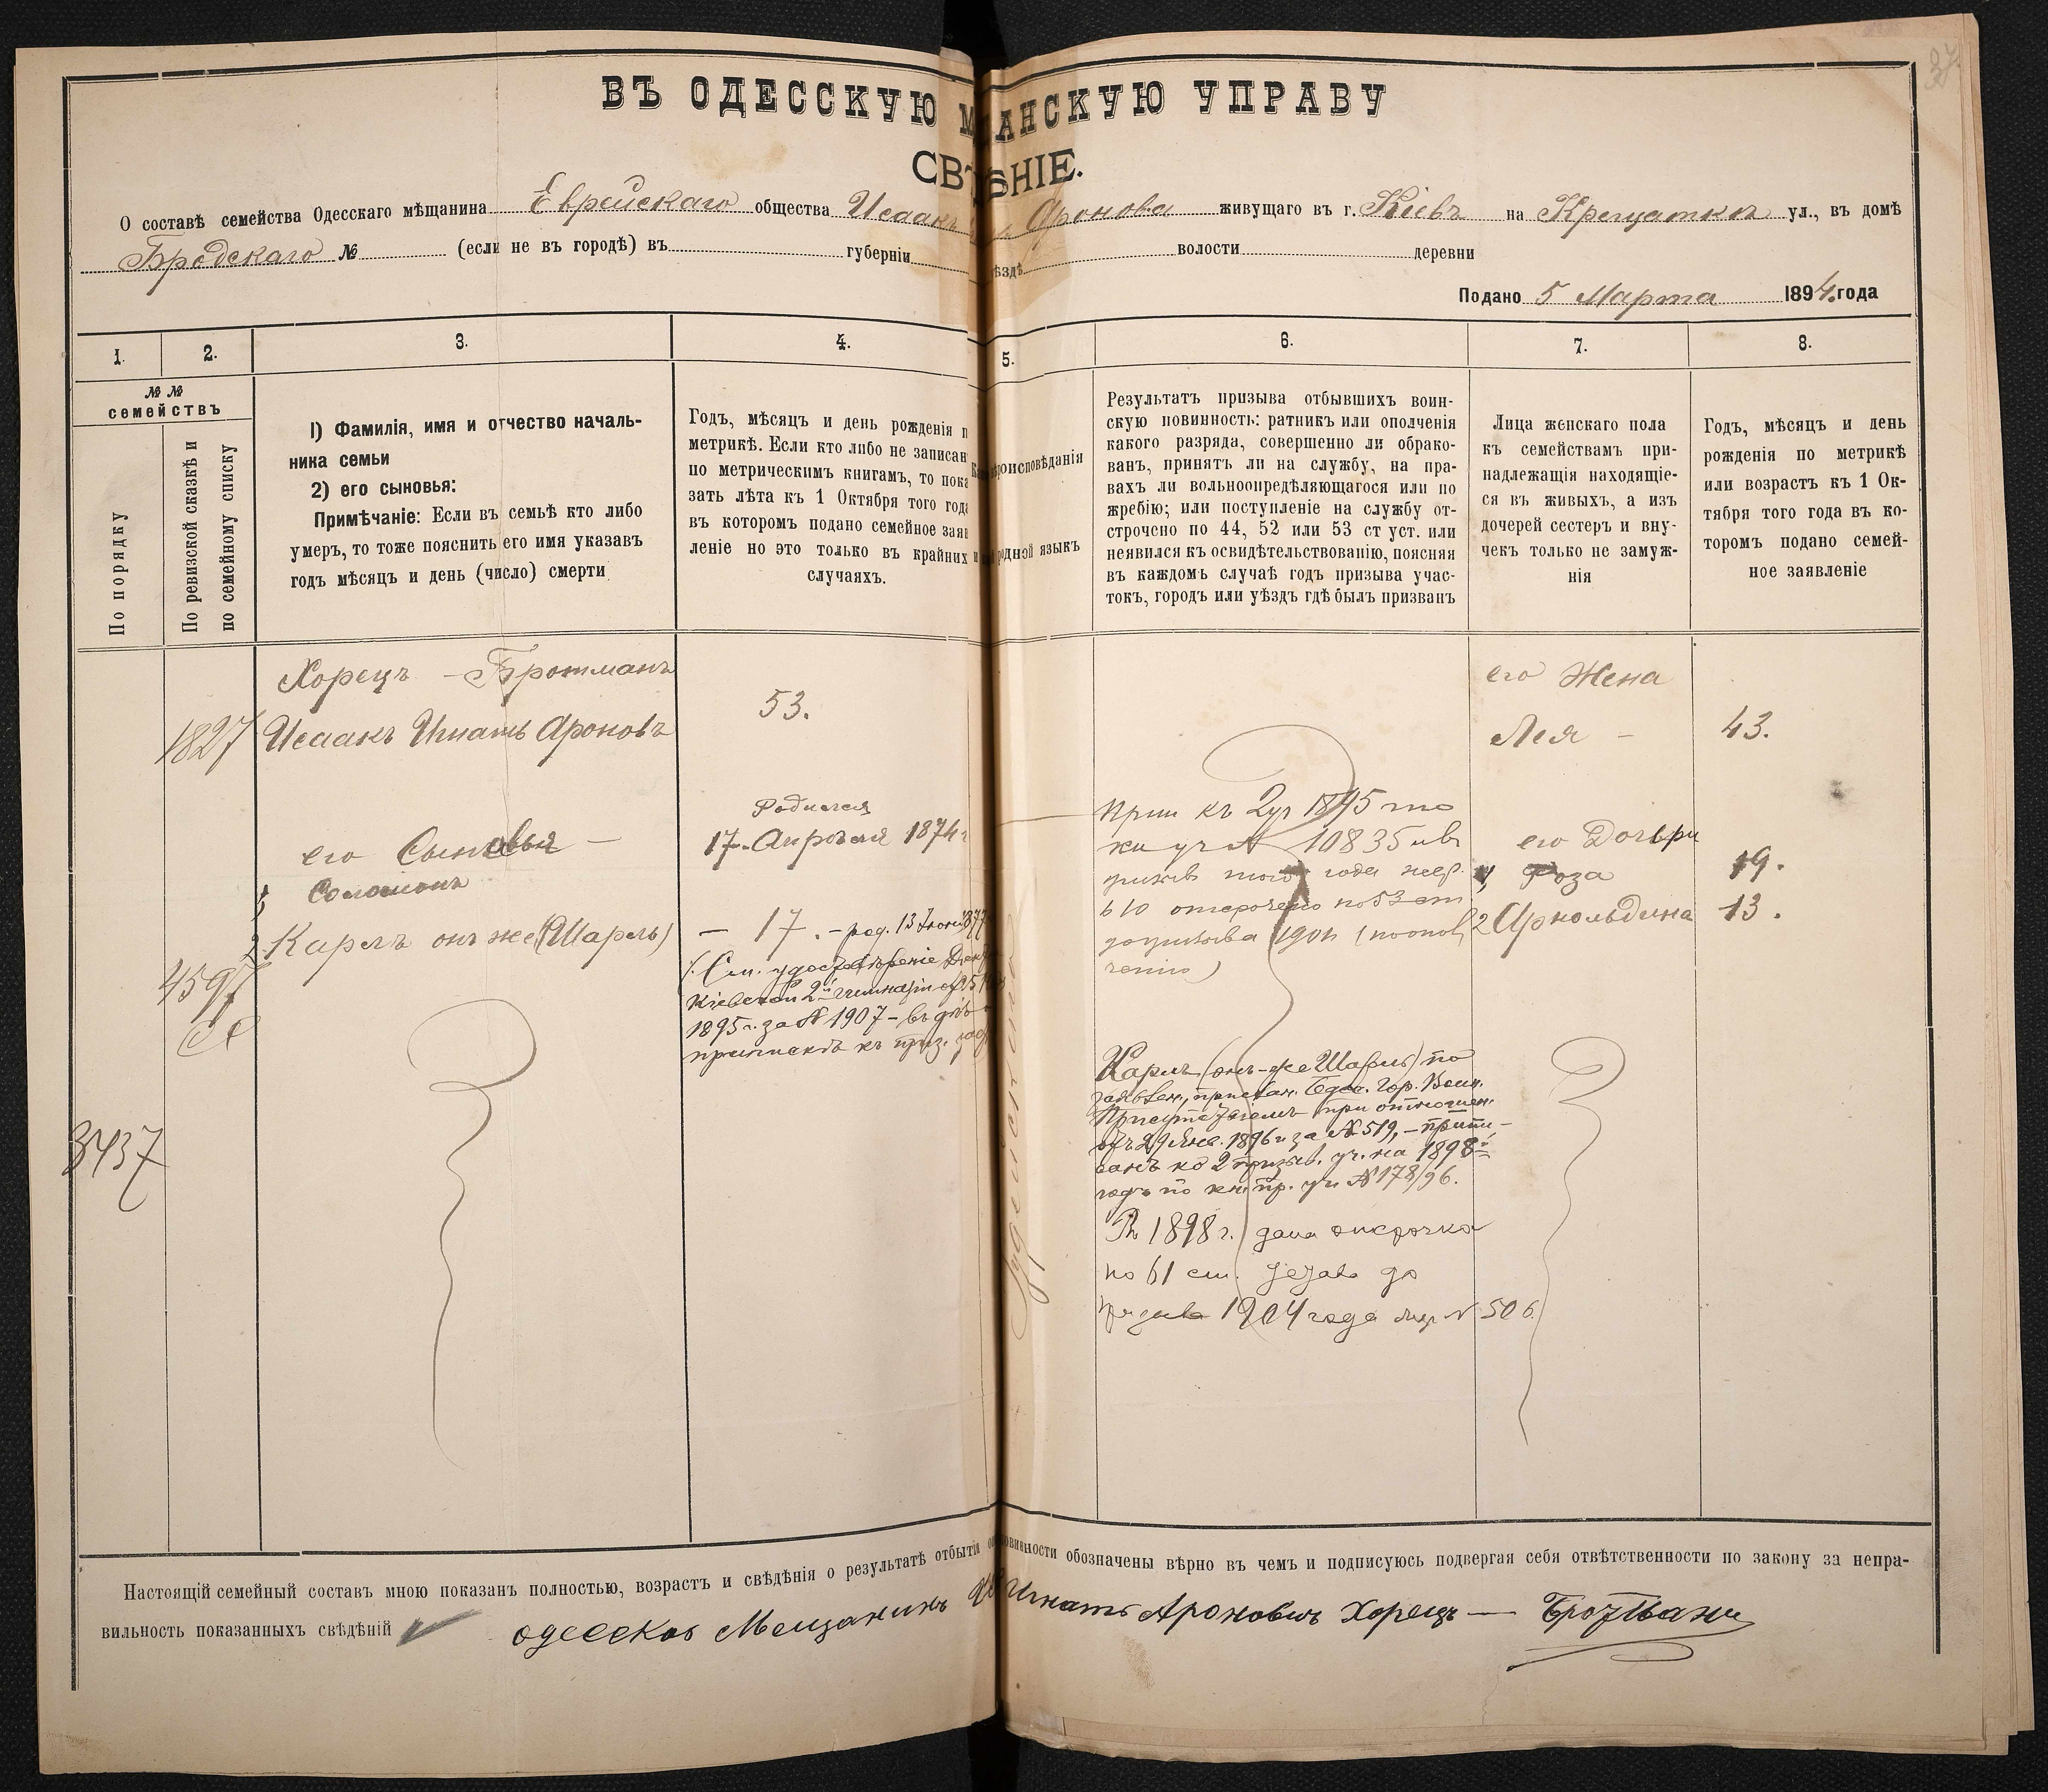 ВЪ ОДЕССКУЮ М АНСКУЮ УПРАВУ
СВѢ НІЕ.
О составѣ семейства Одесскаго мѣщанина Еврейскаго общества Исаакъ Аронова живущаго въ г. Кіевѣ на Крещаткѣ ул., въ домѣ
Бродскаго № (если не въ городѣ) въ губерніи ѣздѣ волости деревни
Подано 5 Марта 1894. года
1. 2. 3. 4. 5. 6. 7. 8.
№ №
семействъ
По порядку
По ревизской сказкѣ и
по семейному списку
1) Фамилія, имя и отчество началь-
ника семьи
2) его сыновья:
Примѣчаніе: Если въ семьѣ кто либо
умеръ, то тоже пояснить его имя указавъ
годъ мѣсяцъ и день (число) смерти
Годъ, мѣсяцъ и день рожденія п
метрикѣ. Если кто либо не записан
по метрическимъ книгамъ, то пока
зать лѣта къ 1 Октября того года
въ которомъ подано семейное заяв
леніе но это только въ крайних
случаяхъ.
роисповѣданія
родной языкъ
Результатъ призыва отбывшихъ воин-
скую повинность: ратникъ или ополченія
какого разряда, совершенно ли обрако-
ванъ, принятъ ли на службу, на пра-
вахъ ли вольноопредѣляющагося или по
жребію; или поступленіе на службу от-
строчено по 44, 52 или 53 ст уст. или
неявился къ освидѣтельствованію, поясняя
въ каждомъ случаѣ годъ призыва учас-
токъ, городъ или уѣздъ гдѣ былъ призванъ
Лица женскаго пола
къ семействамъ при-
надлежащія находящіе-
ся въ живыхъ, а изъ
дочерей сестеръ и вну-
чекъ только не замуж-
нія
Годъ, мѣсяцъ и день
рожденія по метрикѣ
или возрастъ къ 1 Ок-
тября того года въ ко-
торомъ подано семей-
ное заявленіе
Хорецъ - Бротманъ
1827 Исаакъ Игнатъ Ароновъ
53.
его Жена
Лея - 43.
его Сыновья -
1, Соломонъ
Родился
17 Апрѣля 1874 г
2 Карлъ онъ же (Шарль)
- 17. - род. 13 Іюня 1877
(См. удостовѣреніе
Кіевской 2й гимназіи
1895 г. за № 1907 - въ дѣлѣ
припискѣ къ приз.
4597
3437
къ 2 уч 1895
уч № 10835
того года
610 отсрочено по 53 ст
1901
Карлъ (онъ-же Шарль) по
заявлен., Одес. Гор. Воин.
Присутствіемъ при отношен.
отъ 29 Янв. 1896 г за № 519, - припи-
санъ ко 2 призыв. уч. на 1898й
годъ по кн. пр. уч № 178/96.
В 1898 г. дана отсрочка
по 61 ст. до
1904 года № 506.
его Дочери
1, Роза 19.
2 Арнольдина 13.
Іудейскаго
Настоящій семейный составъ мною показанъ полностью, возрастъ и свѣдѣнія о результатѣ отбытія повинности обозначены вѣрно въ чемъ и подписуюсь подвергая себя отвѣтственности по закону за непра-
вильность показанныхъ свѣдѣній одесскоѣ Мещанинъ Игнатъ Ароновичъ Хорецъ — Бротманъ